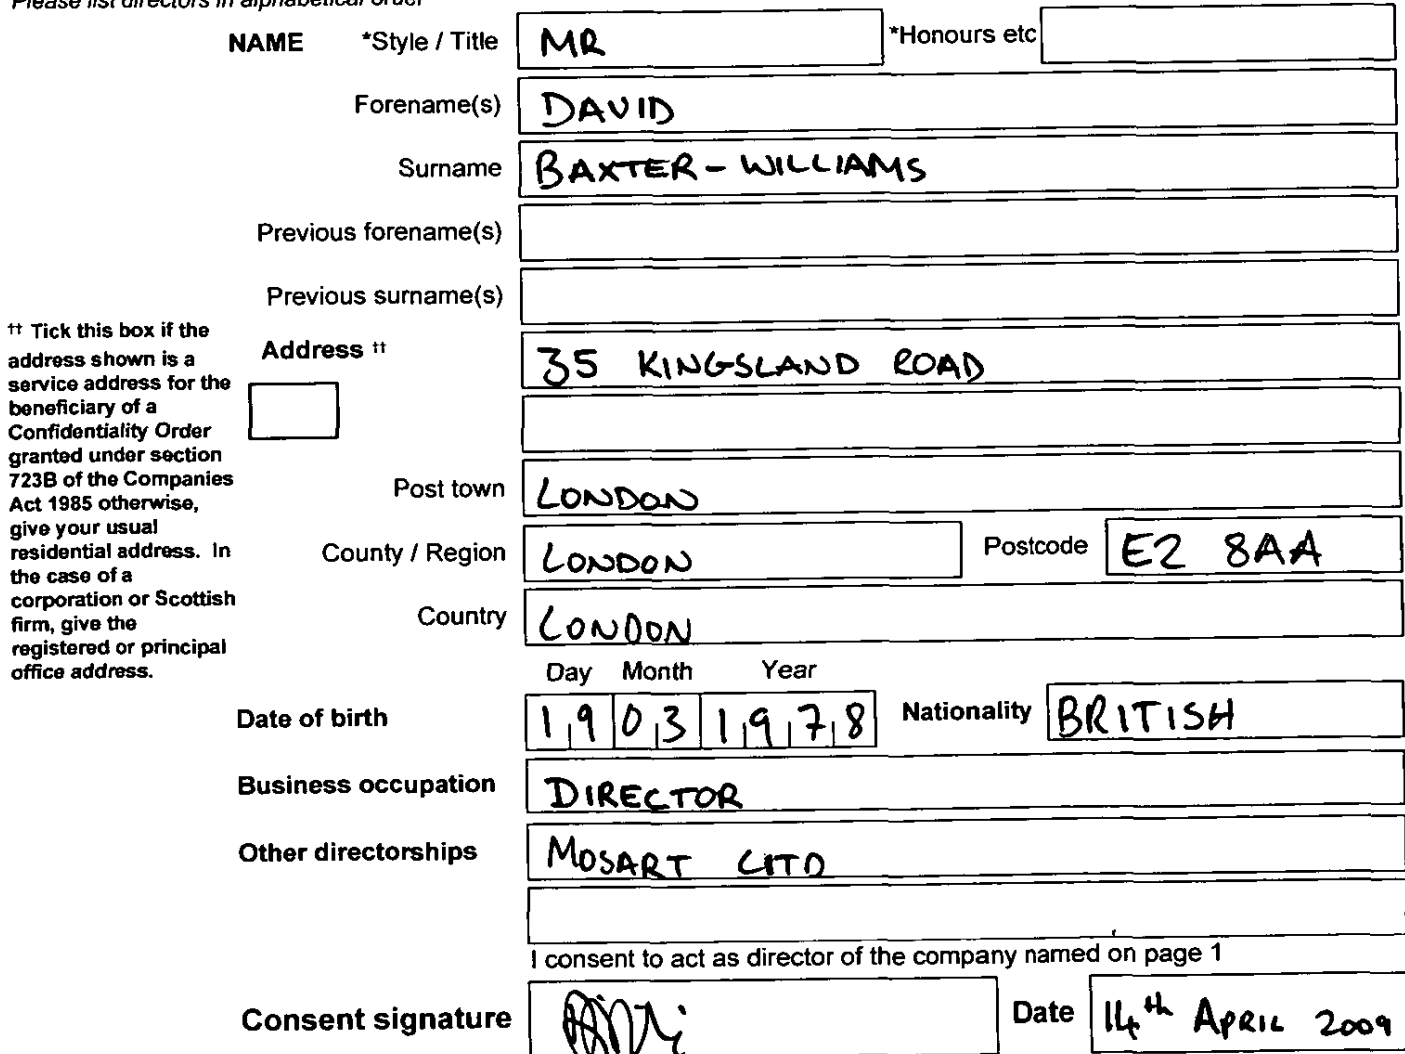 Please list directors in alphabetical order
NAME *Style / Title MR *Honours etc
Forename(s) DAVID
Surname BAXTER-WILLIAMS
Previous forename(s)
Previous surname(s)
†† Tick this box if the
address shown is a
service address for the
beneficiary of a
Confidentiality Order
granted under section
723B of the Companies
Act 1985 otherwise,
give your usual
residential address. In
the case of a
corporation or Scottish
firm, give the
registered or principal
office address.
Address †† 35 KINGSLAND ROAD
Post town LONDON
County / Region LONDON Postcode E2 8AA
Country LONDON
Day Month Year
Date of birth 19 03 1978 Nationality BRITISH
Business occupation DIRECTOR
Other directorships MOSART LTD
I consent to act as director of the company named on page 1
Consent signature Date 14th APRIL 2009